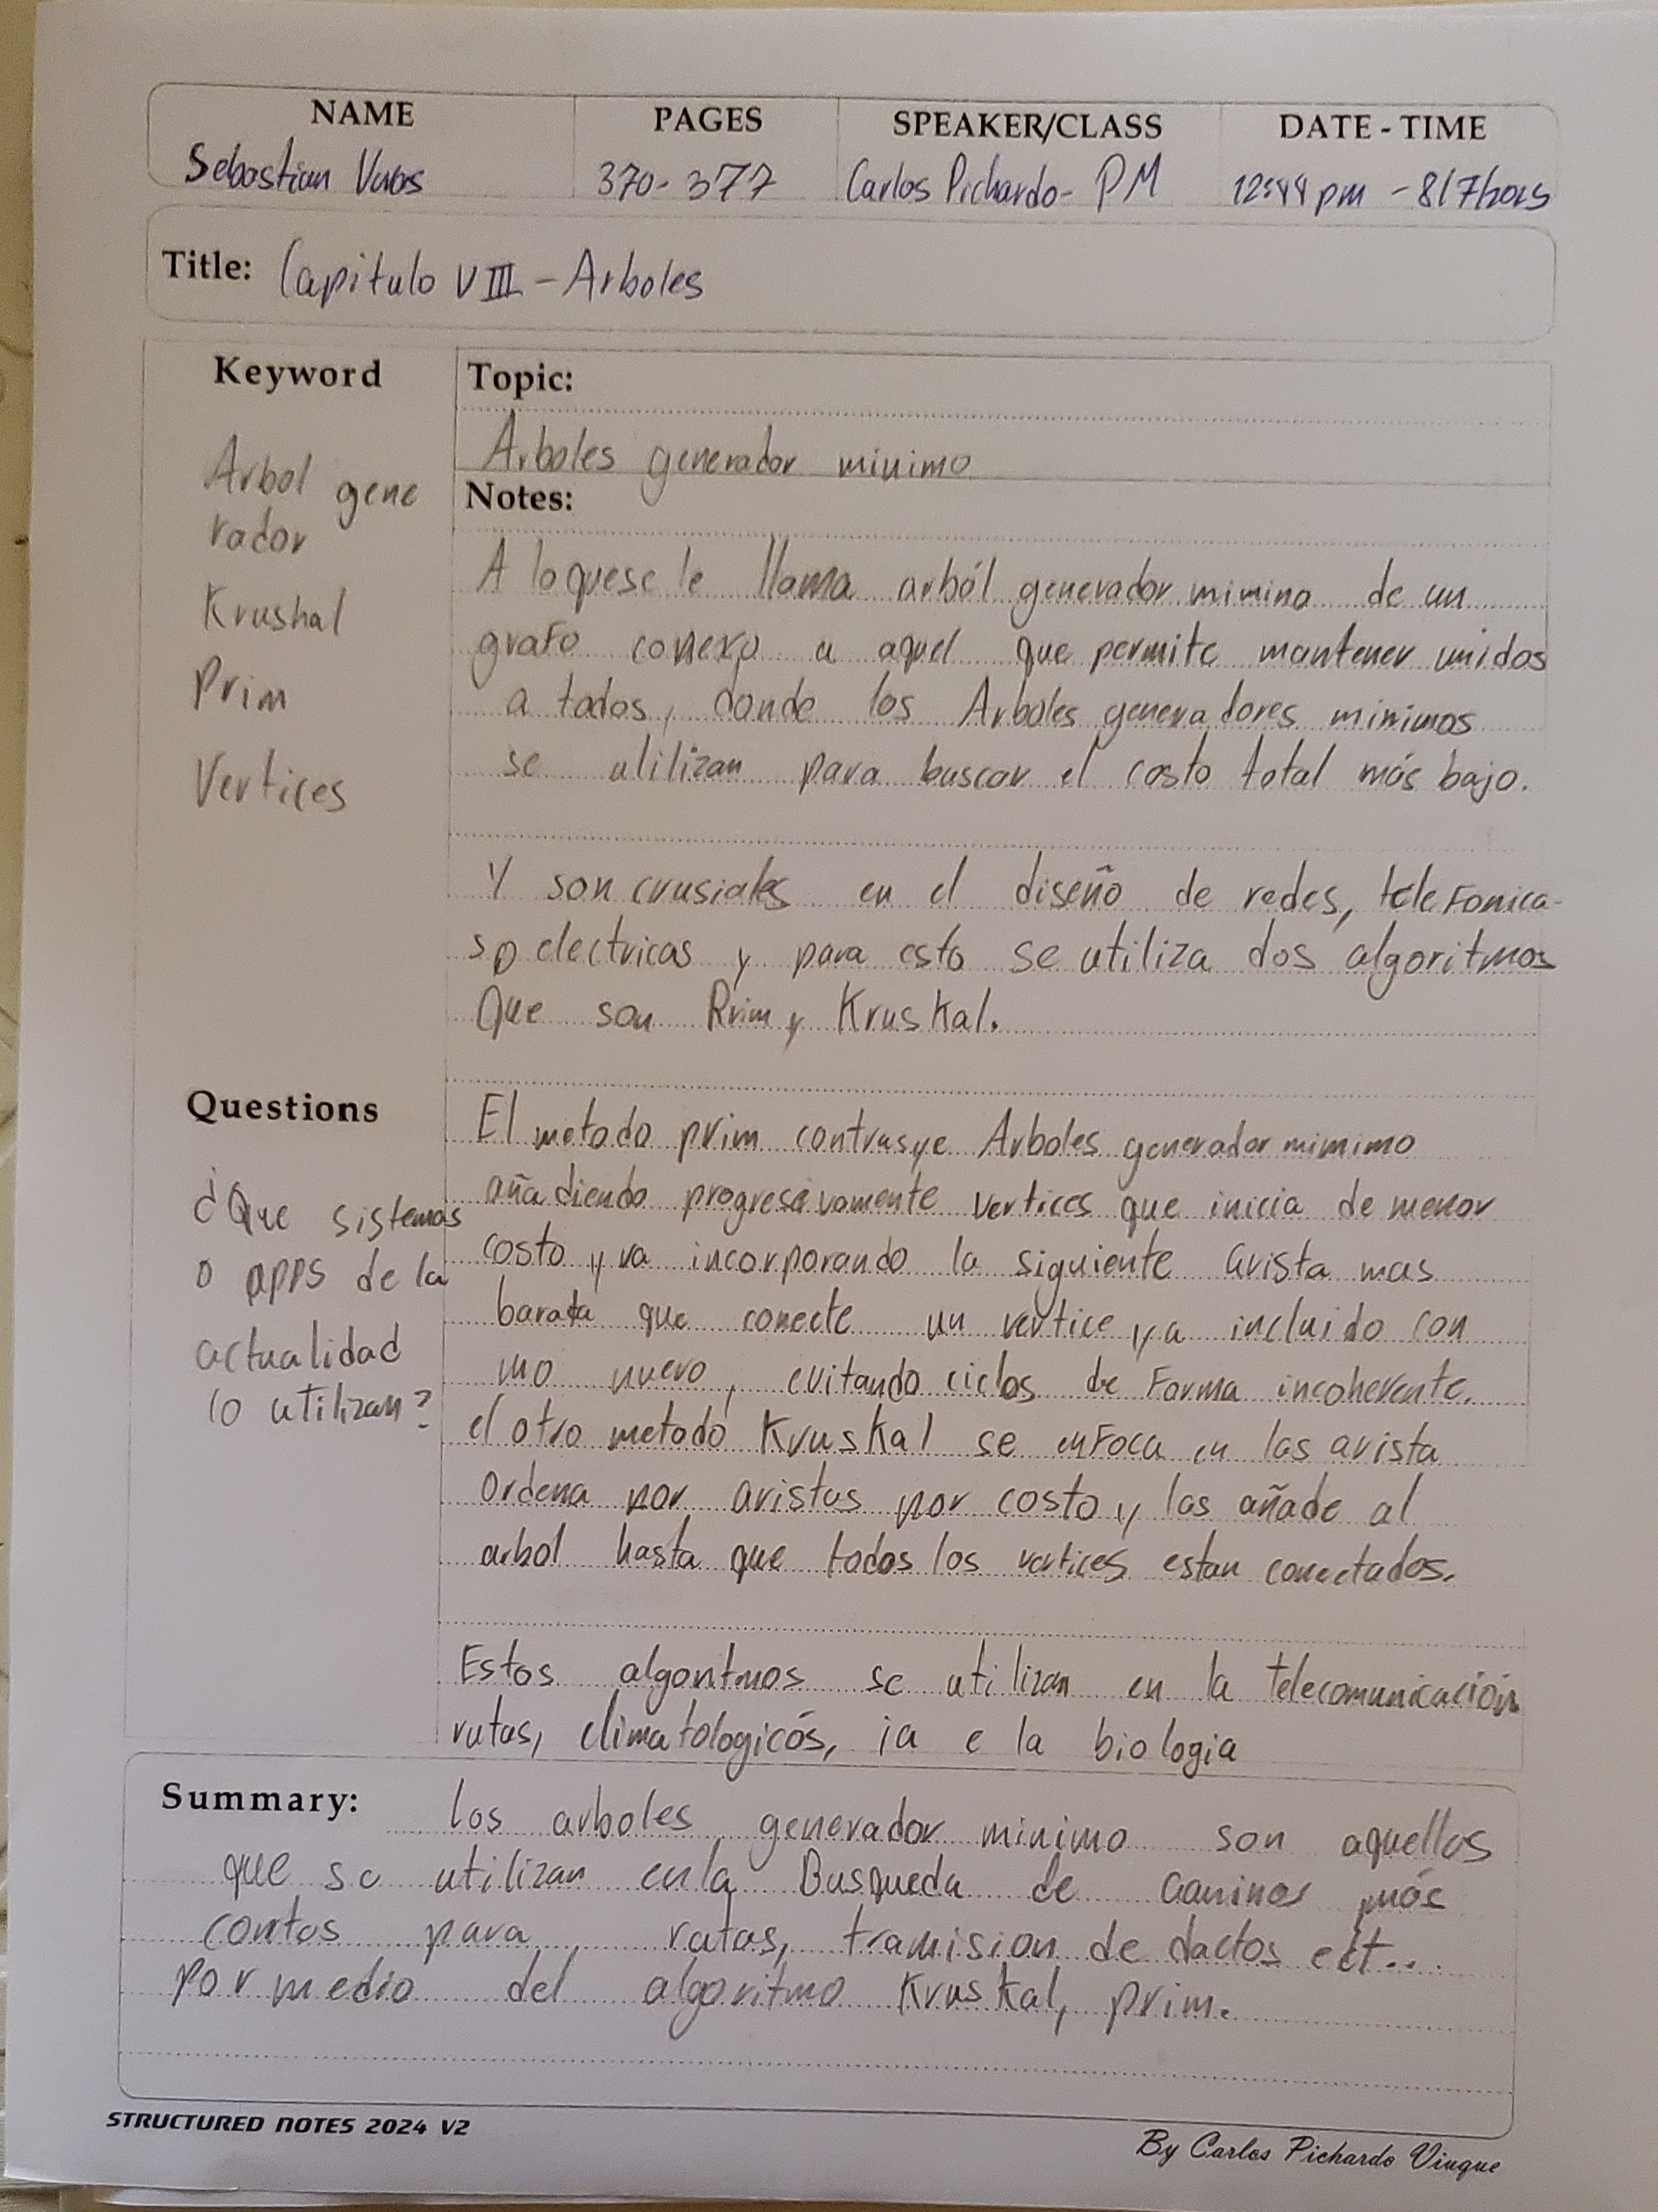 NAME PAGES SPEAKER/CLASS DATE - TIME
Sebastian 370-377 Carlos Pichardo- PM 12:44 pm - 8/7/2025
Title: Capitulo VIII - Arboles
Keyword
Arbol gene
rador
Krushal
Prim
Vertices
Topic:
Arboles generador minimo
Notes:
A loquese le llama arból generador mimino de un
grafo conexo a aquel que permite mantener unidos
a todos, donde los Arboles generadores minimos
se utilizan para buscar el costo total más bajo.
Y son crusiales en el diseño de redes, telefonica-
s o electricas y para esto se utiliza dos algoritmos
Que son Prim y Kruskal.
Questions
¿Que sistemas
o apps de la
actualidad
lo utilizan?
El metodo prim contrusye Arboles generador mimimo
añadiendo progresivamente vertices que inicia de menor
costo y va incorporando la siguiente arista mas
barata que conecte un vertice ya incluido con
uno nuevo, evitando ciclos de Forma incoherente.
el otro metodo Kruskal se enfoca en las arista
Ordena por aristas por costo y las añade al
arbol hasta que todos los vertices estan conectados.
Estos algoritmos se utilizan en la telecomunicación
rutas, climatologicós, ia e la biologia
Summary: los arboles generador minimo son aquellos
que se utilizan en la Busqueda de caminos más
contos para rutas, tramision de dactos ect...
por medio del algoritmo Kruskal, prim.
STRUCTURED NOTES 2024 V2
By Carlos Pichardo Viuque